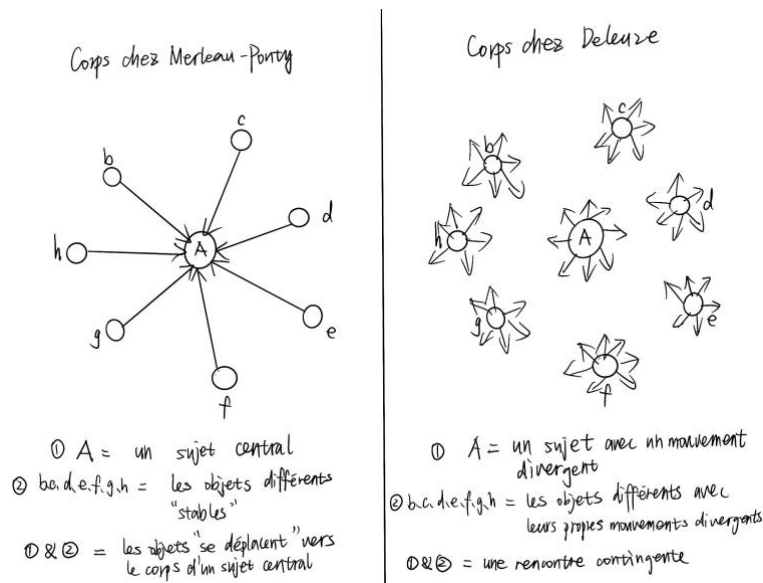 Corps chez Merleau-Ponty
c
b
d
h
A
g
e
f
① A = un sujet central
② b.c.d.e.f.g.h = les objets différents
"stables"
①&② = les objets "se déplacent" vers
le corps d'un sujet central
Corps chez Deleuze
c
b
d
h
A
g
e
f
① A = un sujet avec un mouvement
divergent
② b.c.d.e.f.g.h = les objets différents avec
leurs propres mouvements divergents
①&② = une rencontre contingente